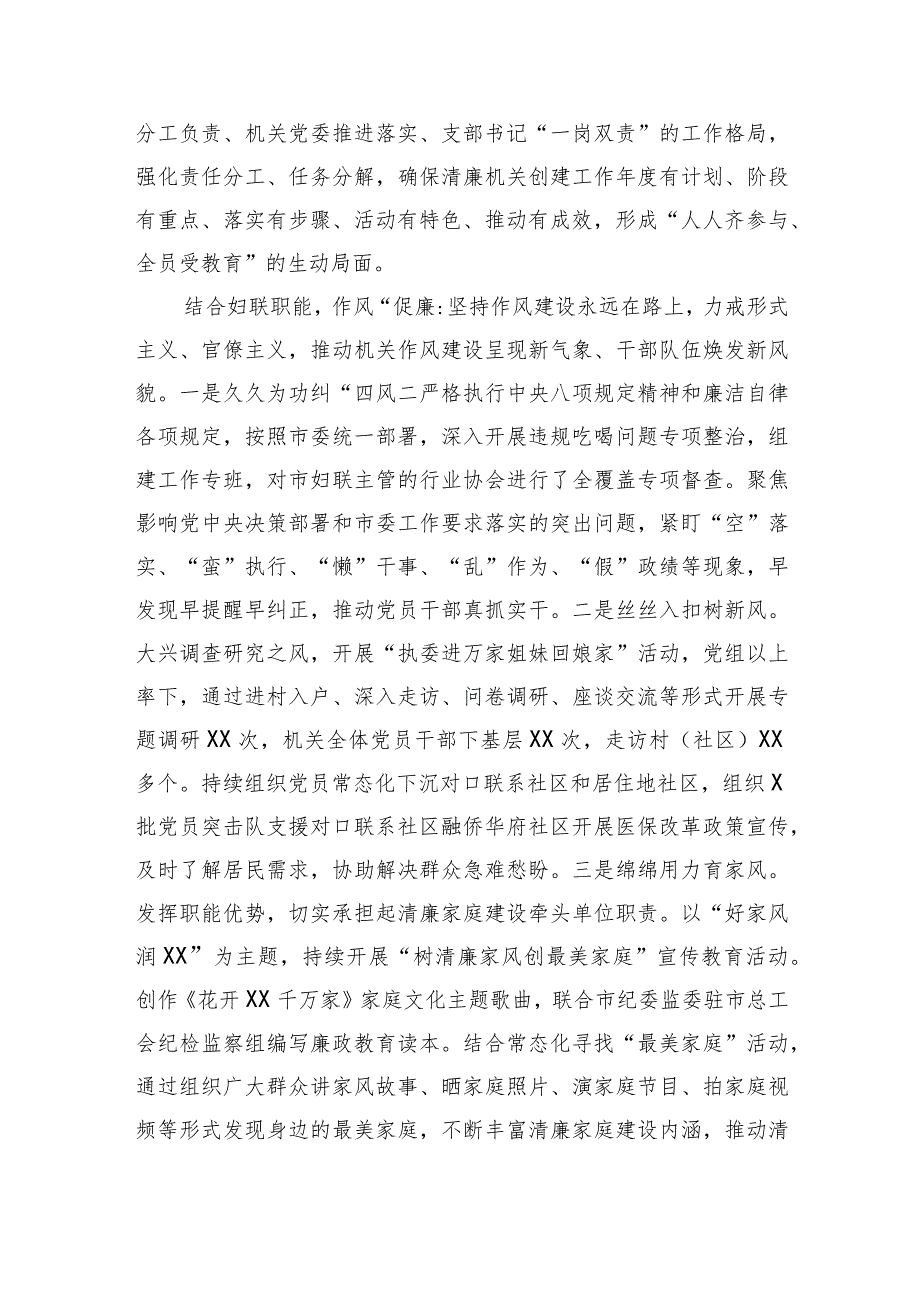 分工负责、机关党委推进落实、支部书记“一岗双责”的工作格局，
强化责任分工、任务分解，确保清廉机关创建工作年度有计划、阶段
有重点、落实有步骤、活动有特色、推动有成效，形成“人人齐参与、
全员受教育”的生动局面。
结合妇联职能，作风“促廉:坚持作风建设永远在路上，力戒形式
主义、官僚主义，推动机关作风建设呈现新气象、干部队伍焕发新风
貌。一是久久为功纠“四风二严格执行中央八项规定精神和廉洁自律
各项规定，按照市委统一部署，深入开展违规吃喝问题专项整治，组
建工作专班，对市妇联主管的行业协会进行了全覆盖专项督查。聚焦
影响党中央决策部署和市委工作要求落实的突出问题，紧盯“空”落
实、“蛮”执行、“懒”干事、“乱”作为、“假”政绩等现象，早
发现早提醒早纠正，推动党员干部真抓实干。二是丝丝入扣树新风。
大兴调查研究之风，开展“执委进万家姐妹回娘家”活动，党组以上
率下，通过进村入户、深入走访、问卷调研、座谈交流等形式开展专
题调研 XX 次，机关全体党员干部下基层 XX 次，走访村（社区）XX
多个。持续组织党员常态化下沉对口联系社区和居住地社区，组织 X
批党员突击队支援对口联系社区融侨华府社区开展医保改革政策宣传，
及时了解居民需求，协助解决群众急难愁盼。三是绵绵用力育家风。
发挥职能优势，切实承担起清廉家庭建设牵头单位职责。以“好家风
润 XX”为主题，持续开展“树清廉家风创最美家庭”宣传教育活动。
创作《花开 XX 千万家》家庭文化主题歌曲，联合市纪委监委驻市总工
会纪检监察组编写廉政教育读本。结合常态化寻找“最美家庭”活动，
通过组织广大群众讲家风故事、晒家庭照片、演家庭节目、拍家庭视
频等形式发现身边的最美家庭，不断丰富清廉家庭建设内涵，推动清